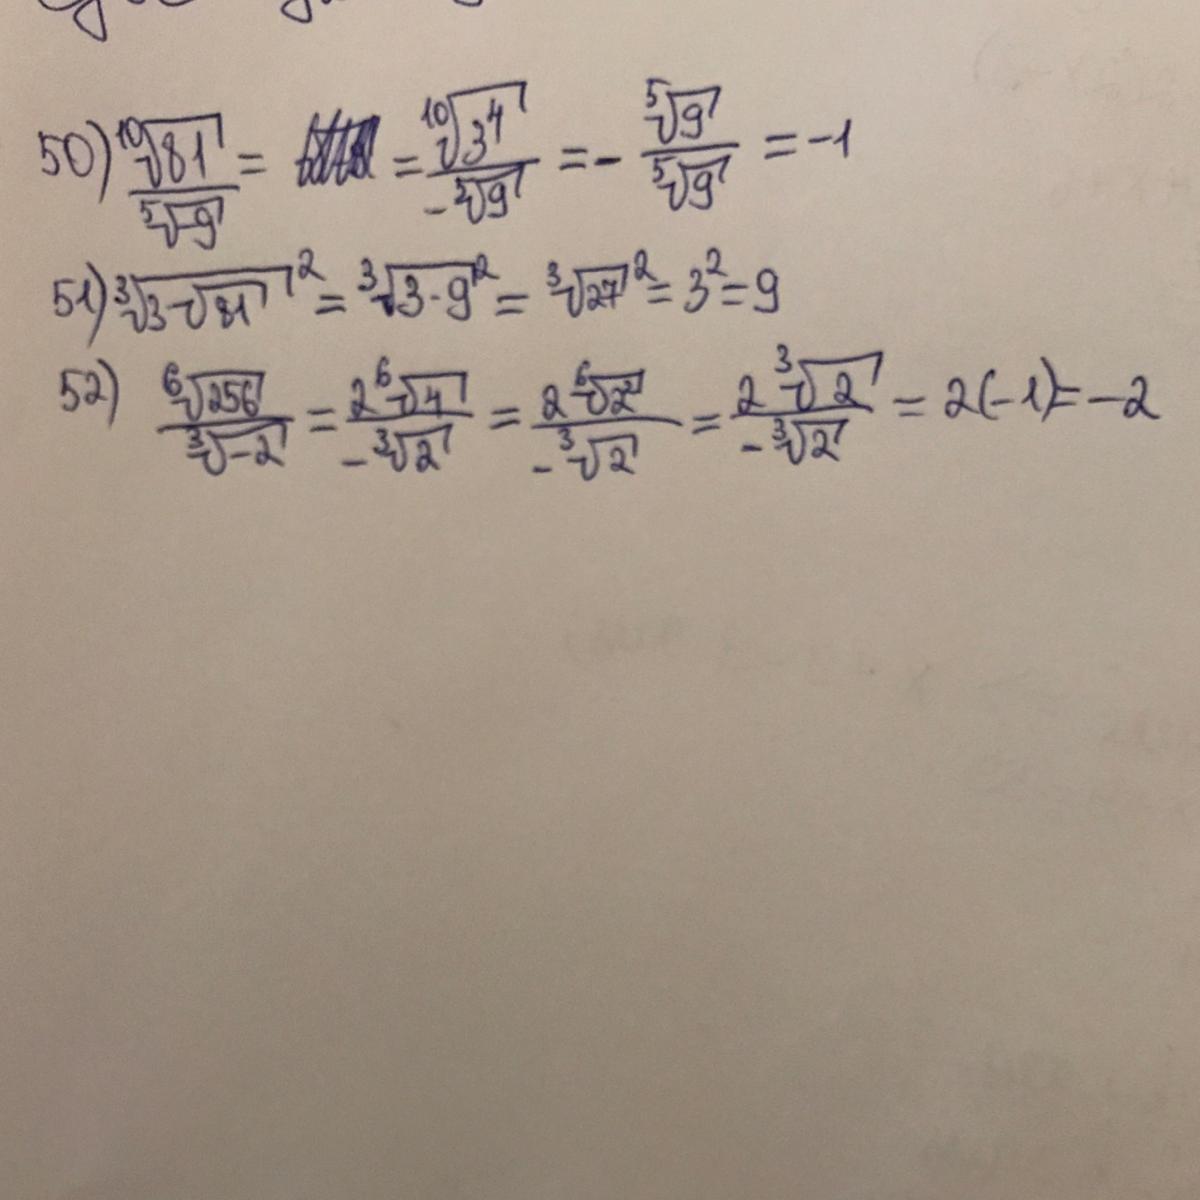 50) ¹⁰√81 / ⁵√-9 = = ¹⁰√3⁴ / -⁵√9 = - ⁵√9 / ⁵√9 = -1
51) ³√(3·√81)² = ³√(3·9)² = ³√27² = 3² = 9
52) ⁶√256 / ³√-2 = 2⁶√4 / -³√2 = 2⁶√2² / -³√2 = 2³√2 / -³√2 = 2(-1) = -2